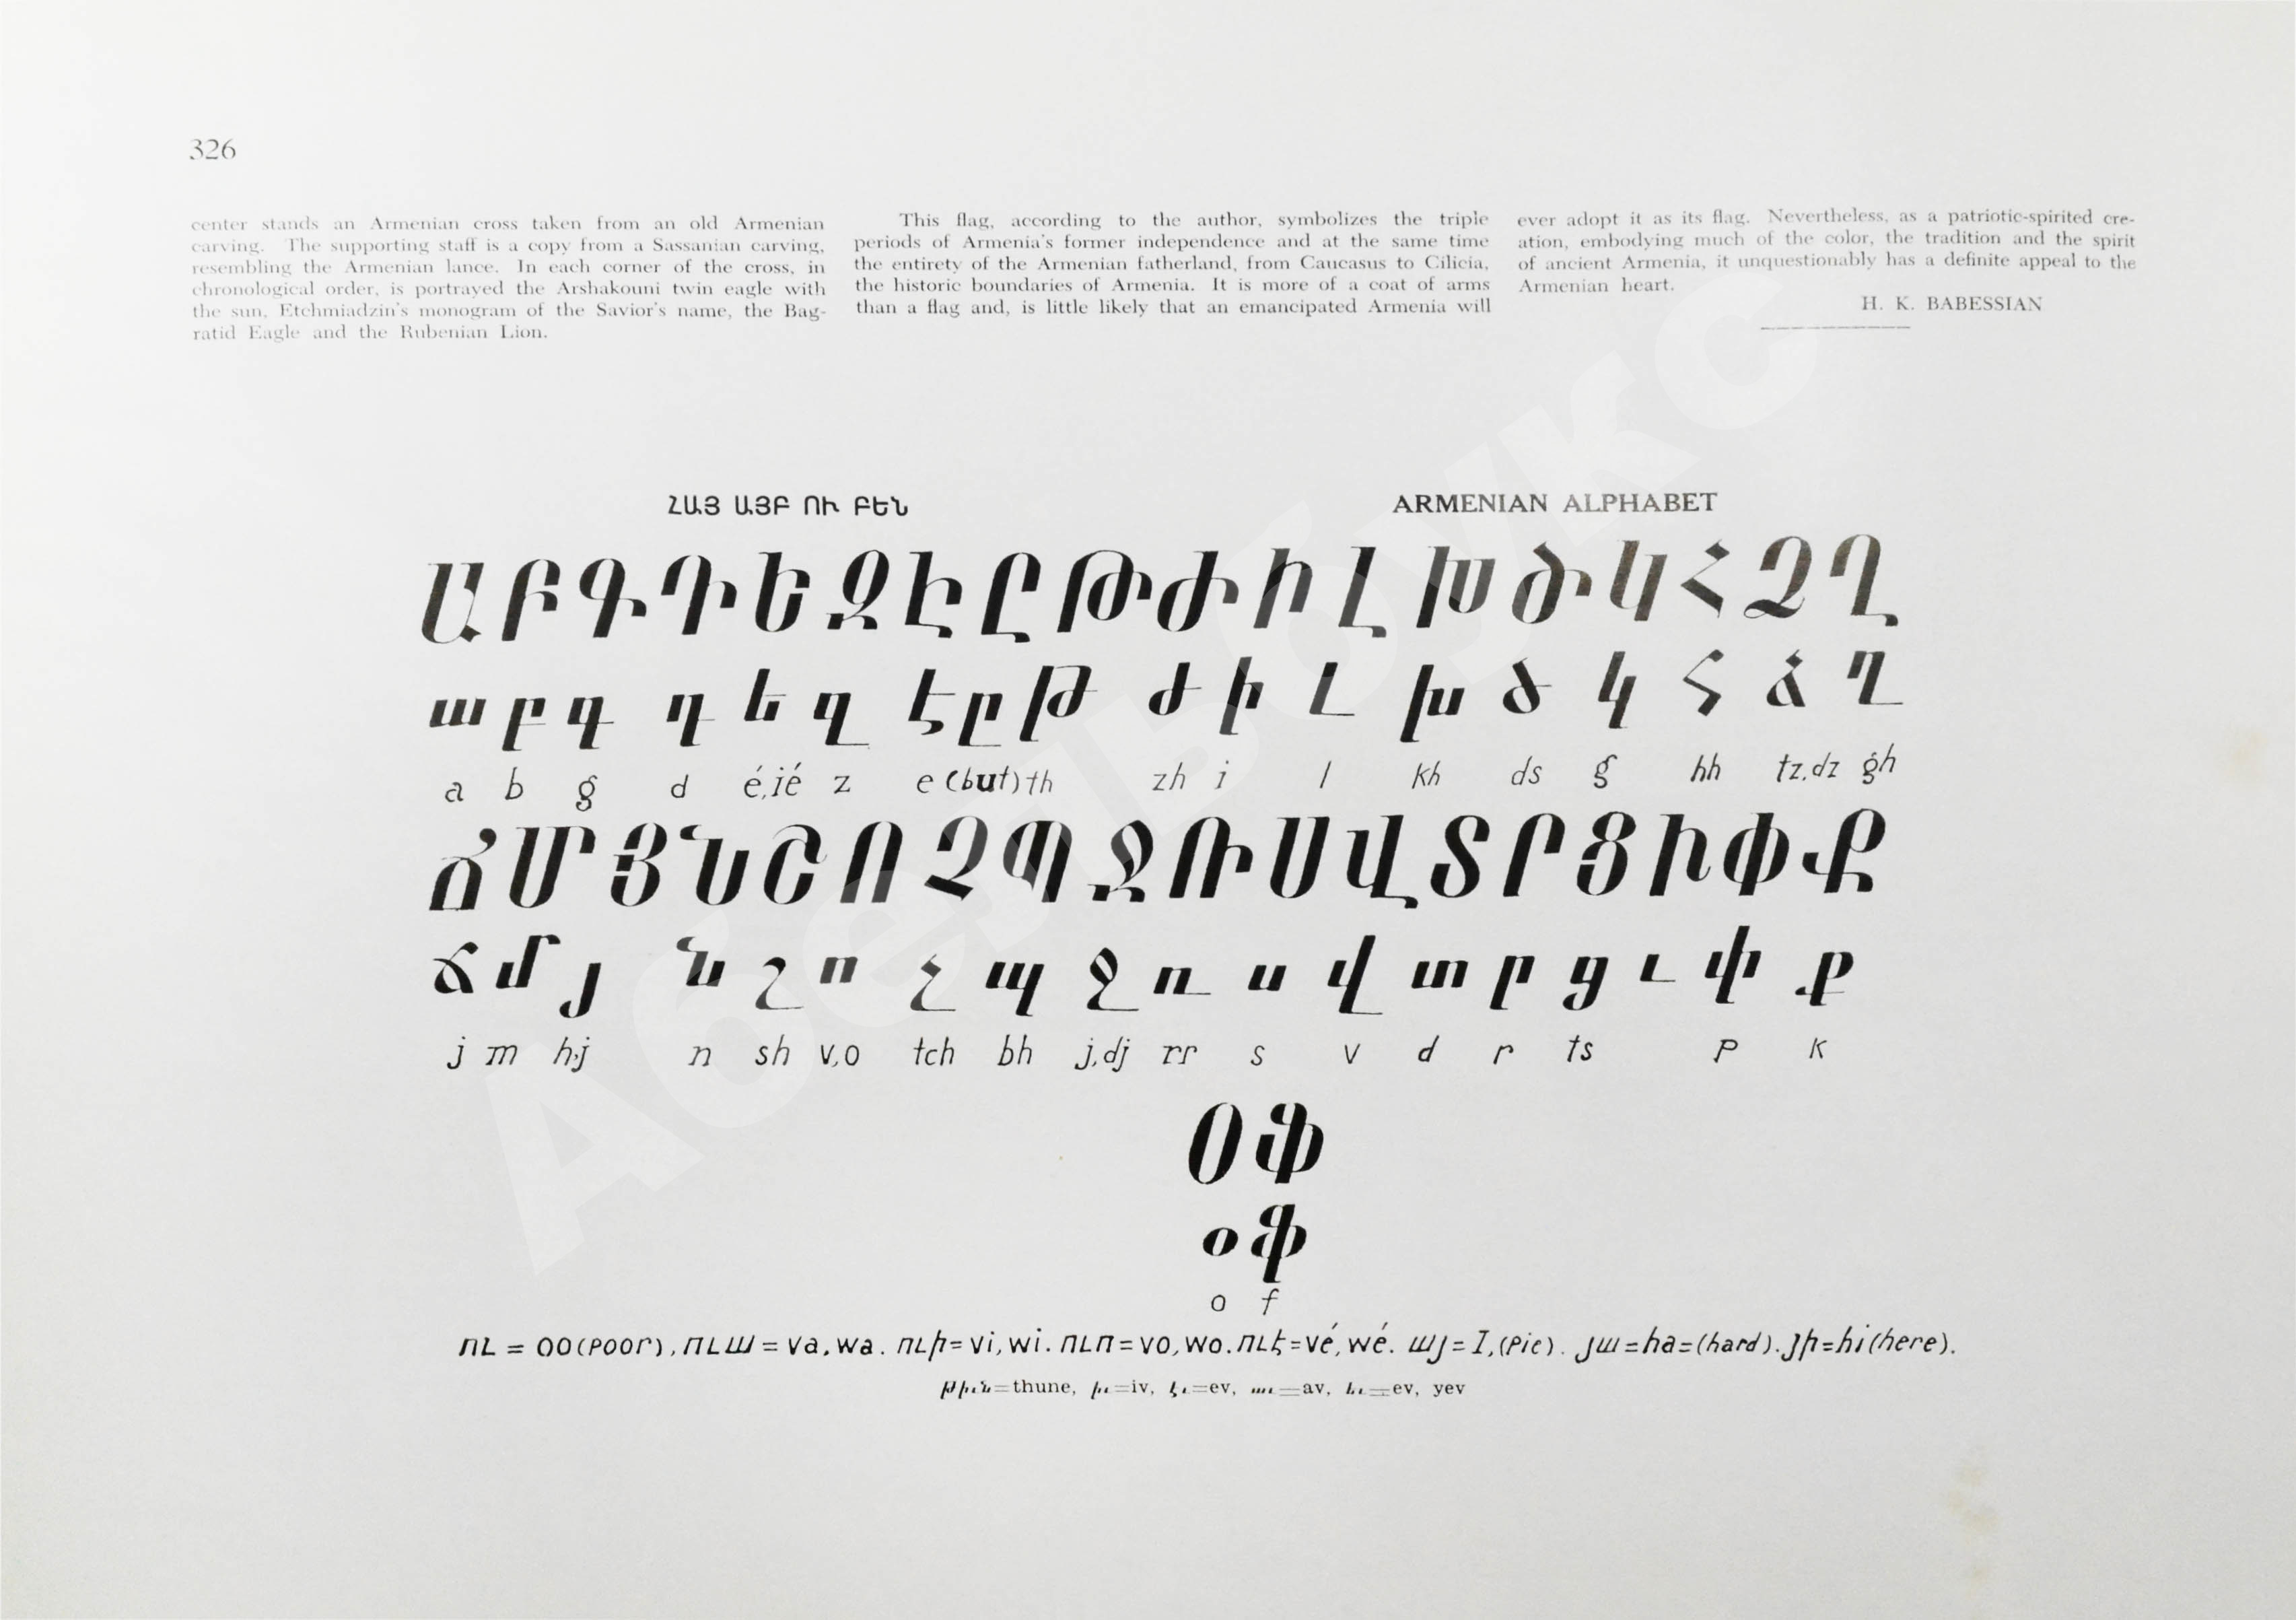 326
center stands an Armenian cross taken from an old Armenian
carving. The supporting staff is a copy from a Sassanian carving,
resembling the Armenian lance. In each corner of the cross, in
chronological order, is portrayed the Arshakouni twin eagle with
the sun, Etchmiadzin's monogram of the Savior's name, the Bag-
ratid Eagle and the Rubenian Lion.
This flag, according to the author, symbolizes the triple
periods of Armenia's former independence and at the same time
the entirety of the Armenian fatherland, from Caucasus to Cilicia,
the historic boundaries of Armenia. It is more of a coat of arms
than a flag and, is little likely that an emancipated Armenia will
ever adopt it as its flag. Nevertheless, as a patriotic-spirited cre-
ation, embodying much of the color, the tradition and the spirit
of ancient Armenia, it unquestionably has a definite appeal to the
Armenian heart.
H. K. BABESSIAN
ՀԱՅ ԱՅԲ ՈՒ ԲԵՆ
ARMENIAN ALPHABET
Ա Բ Գ Դ Ե Զ Է Ը Թ Ժ Ի Լ Խ Ծ Կ Հ Ձ Ղ
ա բ գ դ ե զ է ը թ ժ ի լ խ ծ կ հ ձ ղ
a b g d é,ié z e (but) th zh i l kh ds g hh tz,dz gh
Ճ Մ Յ Ն Շ Ո Չ Պ Ջ Ռ Ս Վ Տ Ր Ց Ւ Փ Ք
ճ մ յ ն շ ո չ պ ջ ռ ս վ տ ր ց ւ փ ք
j m h,j n sh v,o tch bh j,dj rr s v d r ts p k
Օ Ֆ
օ ֆ
o f
ու = oo(poor), ուա = va, wa. ուի= vi, wi. ուո= vo, wo. ուէ=vé, wé. այ= I, (Pie). յա=ha=(hard). յի=hi(here).
թիւն=thune, իւ=iv, էւ=ev, աւ=av, եւ=ev, yev
Абельбукс